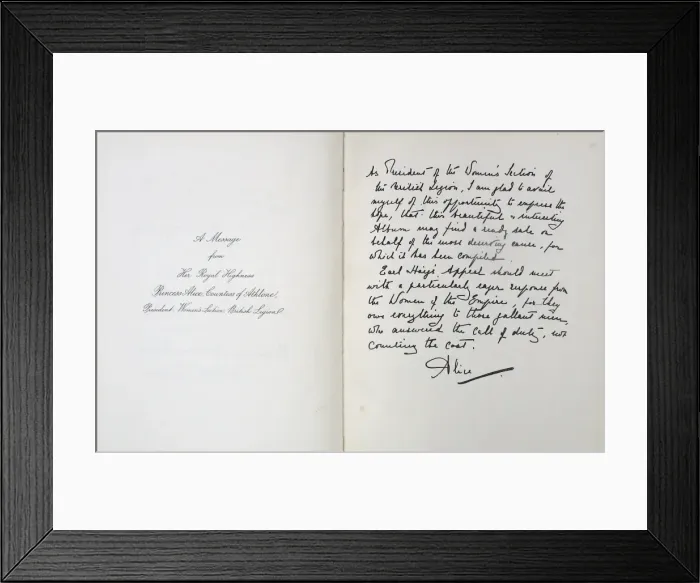 A Message
from
Her Royal Highness
Princess Alice, Countess of Athlone,
President, Women's Section, British Legion.
As President of the Women's Section of
the British Legion, I am glad to avail
myself of this opportunity to express the
hope, that this beautiful & interesting
Album may find a ready sale on
behalf of the most deserving cause, for
which it has been compiled.
Earl Haig's Appeal should meet
with a particularly eager response from
the Women of the Empire, for they
owe everything to those gallant men,
who answered the call of duty, not
counting the cost.
Alice